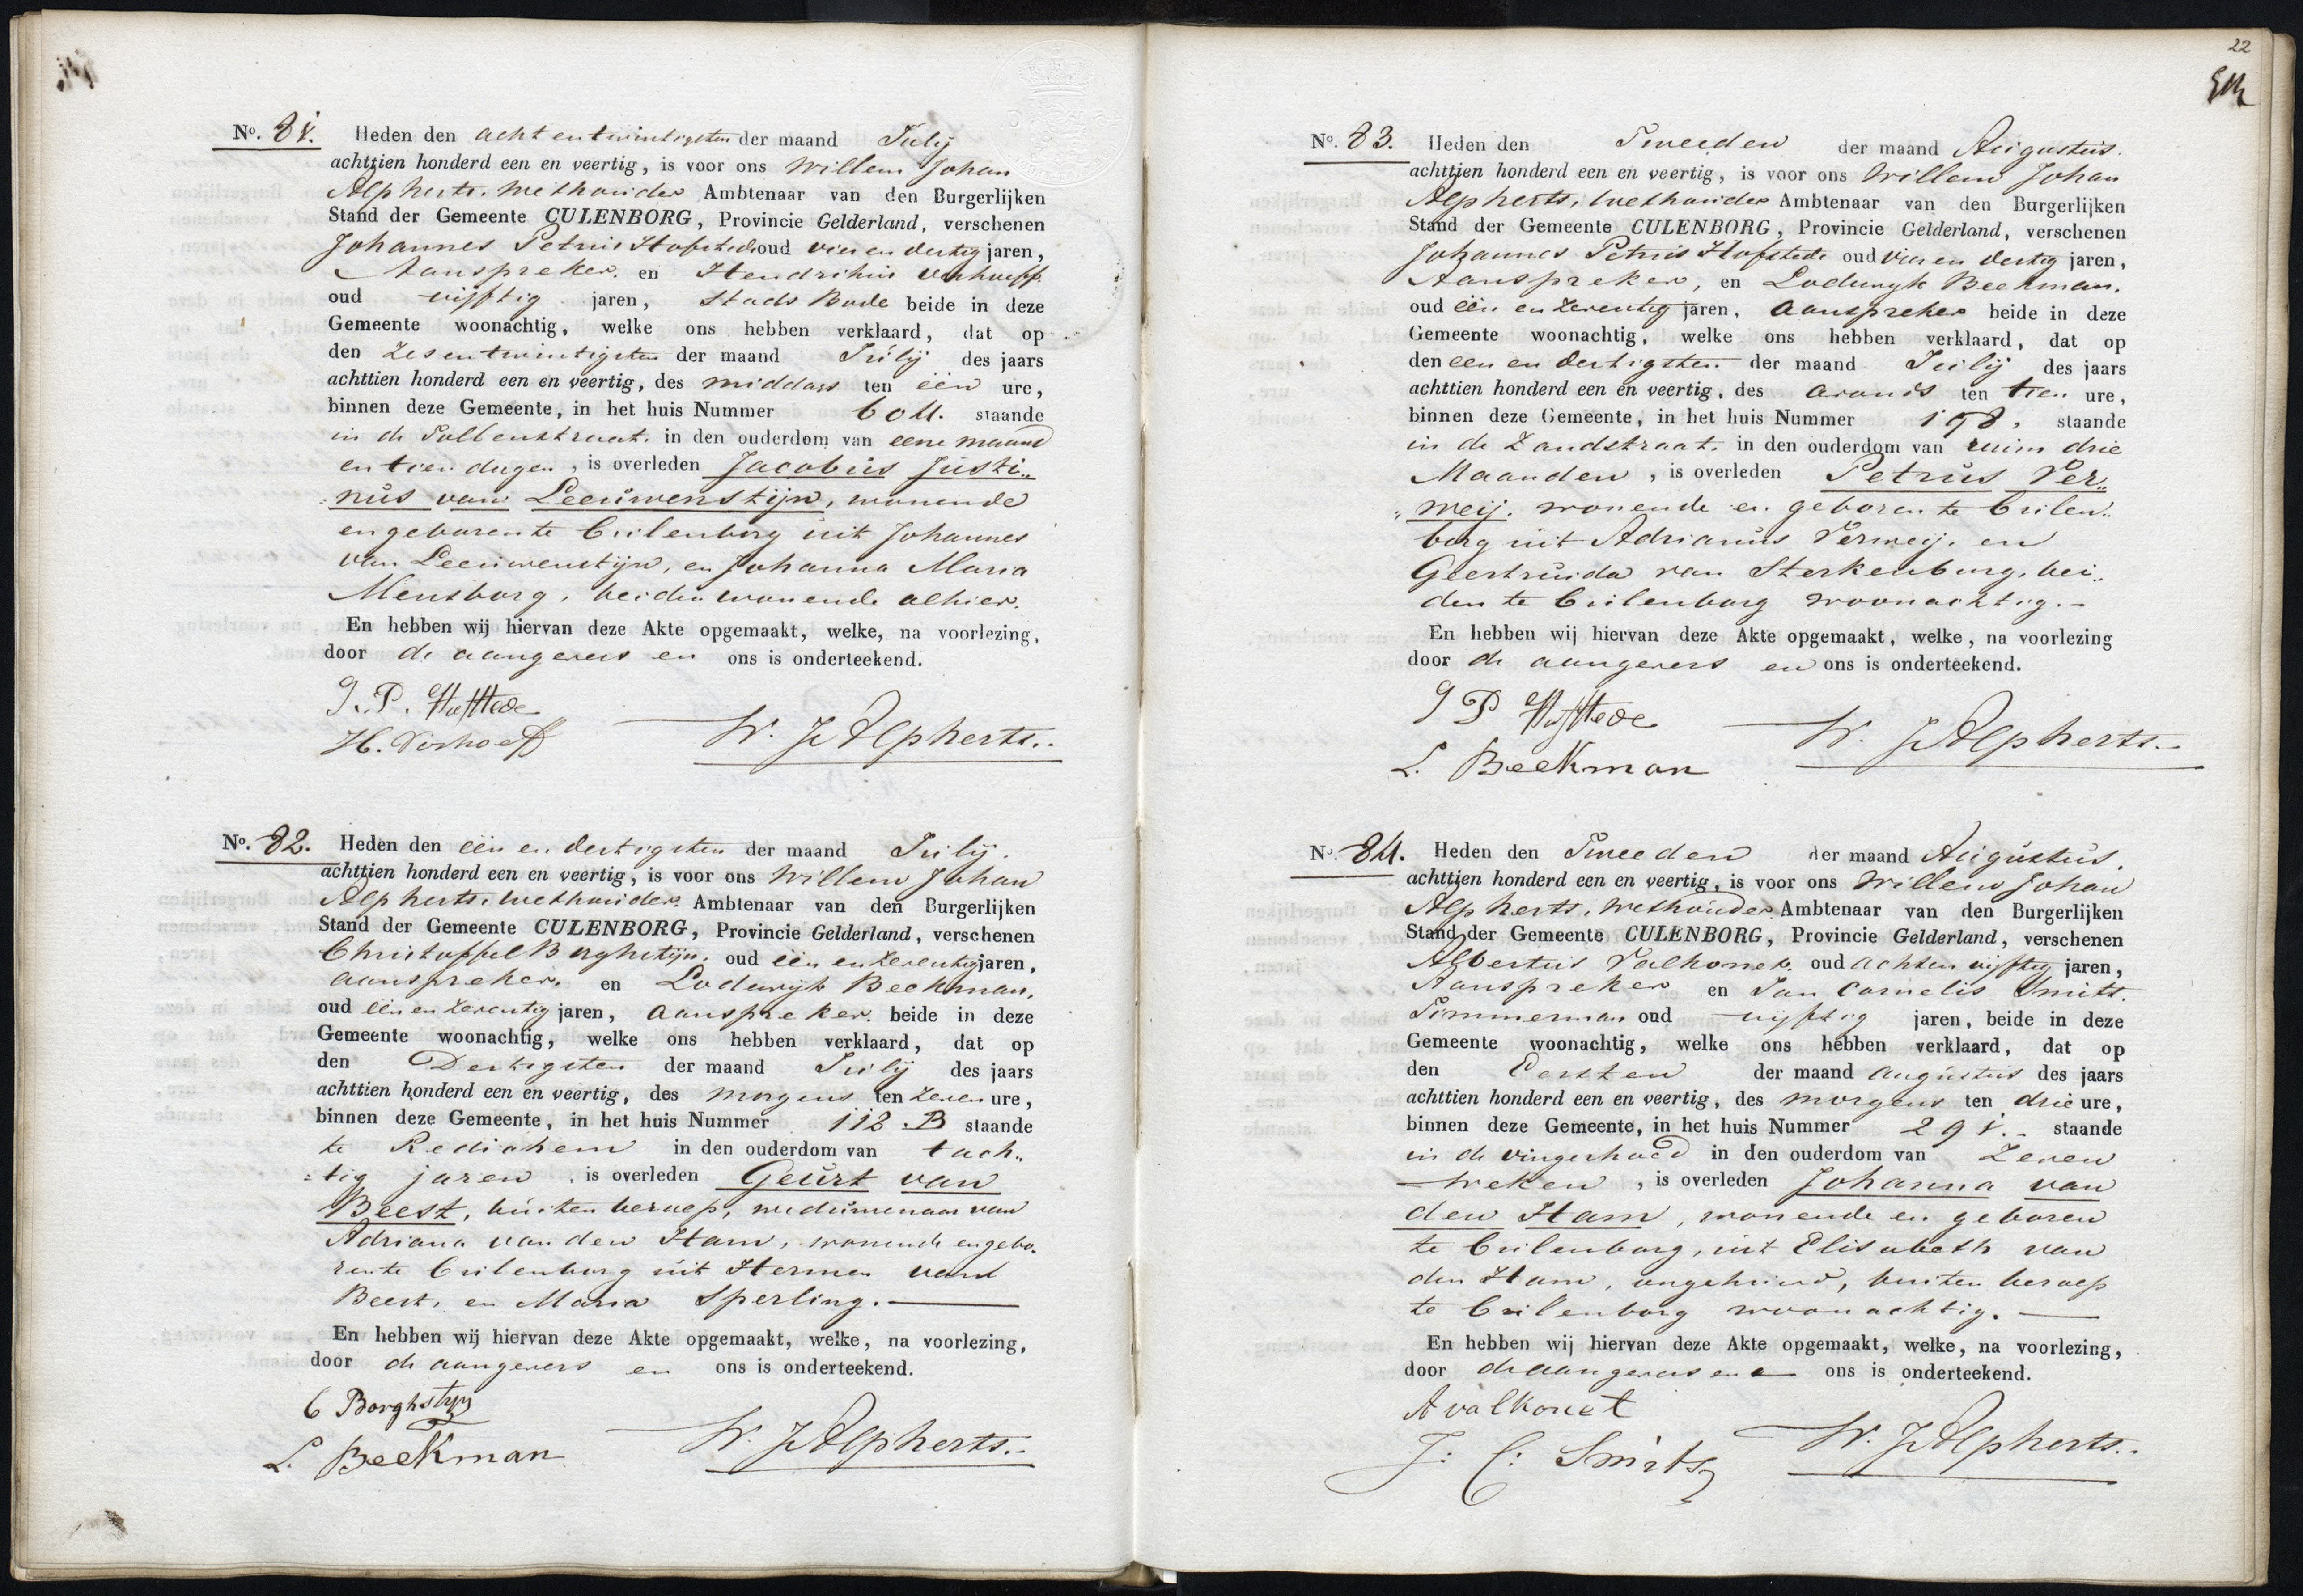 No. 81. Heden den achtentwintigsten der maand Julij
achttien honderd een en veertig, is voor ons Willem Johan
Alpherts. Wethouder Ambtenaar van den Burgerlijken
Stand der Gemeente CULENBORG, Provincie Gelderland, verschenen
Johannes Petrus Hofstede oud vier en dertig jaren,
Aanspreker. en Hendrikus Verhoeff.
oud vijftig jaren, Stads Bode beide in deze
Gemeente woonachtig, welke ons hebben verklaard, dat op
den Zesentwintigsten der maand Julij des jaars
achttien honderd een en veertig, des middags ten één ure,
binnen deze Gemeente, in het huis Nummer 604. staande
in de Tollenstraat. in den ouderdom van eene maand
en tien dagen, is overleden Jacobus Justi„
nus van Leeuwenstijn, wonende
en geboren te Cuilenborg uit Johannes
van Leeuwenstijn, en Johanna Maria
Mensborg, beiden wonende alhier.
En hebben wij hiervan deze Akte opgemaakt, welke, na voorlezing,
door de aangevers en ons is onderteekend.
J. P. Hofstede
H. Verhoeff
W. J. Alpherts..
No. 82. Heden den één en dertigsten der maand Julij.
achttien honderd een en veertig, is voor ons Willem Johan
Alpherts. Wethouder. Ambtenaar van den Burgerlijken
Stand der Gemeente CULENBORG, Provincie Gelderland, verschenen
Christoffel Borghstijn. oud één en zeventig jaren,
aanspreker. en Lodewijk Beekman.
oud één en zeventig jaren, aanspreker. beide in deze
Gemeente woonachtig, welke ons hebben verklaard, dat op
den Dertigsten der maand Julij des jaars
achttien honderd een en veertig, des morgens ten zeven ure,
binnen deze Gemeente, in het huis Nummer 118 B staande
te Redichem in den ouderdom van tach„
tig jaren, is overleden Geurt van
Beest, buiten beroep, weduwenaar van
Adriana van den Ham, wonende en gebo„
ren te Cuilenborg uit Hermen van
Beest, en Maria Sperling.
En hebben wij hiervan deze Akte opgemaakt, welke, na voorlezing,
door de aangevers en ons is onderteekend.
C Borghstijn
L. Beekman
W. J. Alpherts..
22
No. 83. Heden den Tweeden der maand Augustus.
achttien honderd een en veertig, is voor ons Willem Johan
Alpherts, Wethouder Ambtenaar van den Burgerlijken
Stand der Gemeente CULENBORG, Provincie Gelderland, verschenen
Johannes Petrus Hofstede oud vier en dertig jaren,
Aanspreker, en Lodewijk Beekman.
oud één en zeventig jaren, aanspreker beide in deze
Gemeente woonachtig, welke ons hebben verklaard, dat op
den een en dertigsten der maand Julij des jaars
achttien honderd een en veertig, des avonds ten tien ure,
binnen deze Gemeente, in het huis Nummer 198, staande
in de Zandstraat. in den ouderdom van ruim drie
Maanden, is overleden Petrus Ver„
meij. wonende en geboren te Cuilen„
borg uit Adrianus Vermeij. en
Geertruida van Sterkenburg, bei„
den te Cuilenborg woonachtig.
En hebben wij hiervan deze Akte opgemaakt, welke, na voorlezing
door de aangevers en ons is onderteekend.
J P Hofstede
L. Beekman
W. J. Alpherts..
No. 84. Heden den Tweeden der maand Augustus.
achttien honderd een en veertig, is voor ons Willem Johan
Alpherts. Wethouder Ambtenaar van den Burgerlijken
Stand der Gemeente CULENBORG, Provincie Gelderland, verschenen
Albertus Valkonet. oud achten vijftig jaren,
Aanspreker en Jan Cornelis Smits.
Timmerman oud vijftig jaren, beide in deze
Gemeente woonachtig, welke ons hebben verklaard, dat op
den Eersten der maand Augustus des jaars
achttien honderd een en veertig, des morgens ten drie ure,
binnen deze Gemeente, in het huis Nummer 291. staande
in de vingerhoed in den ouderdom van Zeven
weken, is overleden Johanna van
den Ham, wonende en geboren
te Cuilenborg, uit Elisabeth van
den Ham, ongehuwd, buiten beroep
te Cuilenborg woonachtig.
En hebben wij hiervan deze Akte opgemaakt, welke, na voorlezing,
door de aangevers en ons is onderteekend.
A valkonet
J: C: Smits
W. J. Alpherts..